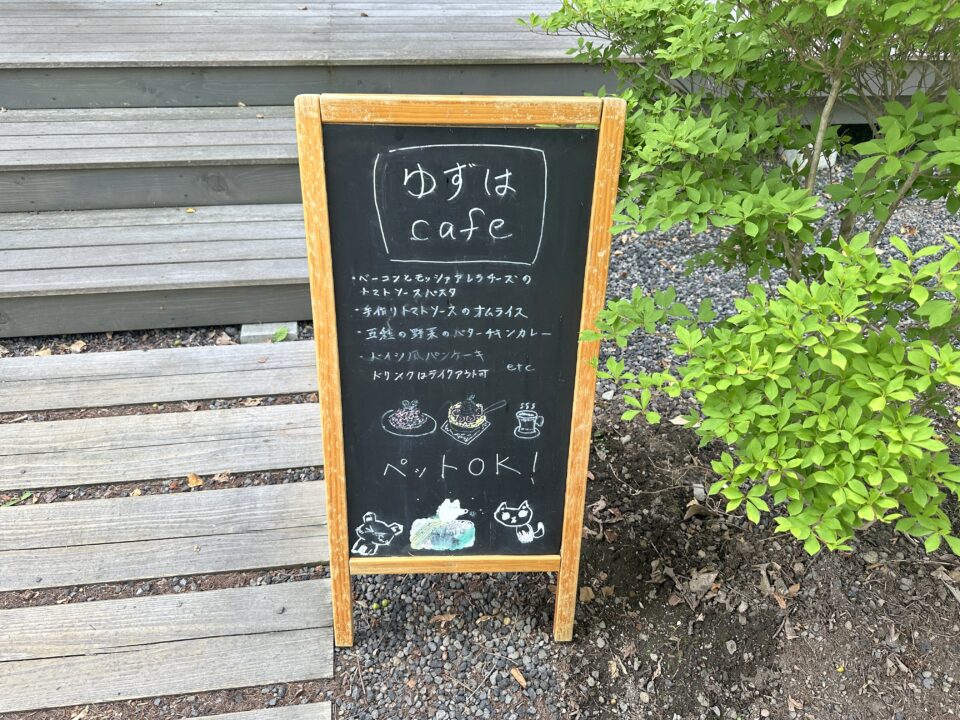 ゆずは
cafe
・ベーコンとモッツァアレラチーズの
トマトソースパスタ
・手作りトマトソースのオムライス
・五種の野菜のバターチキンカレー
・ドイツ風パンケーキ
ドリンクはテイクアウト可 etc
ペットOK!